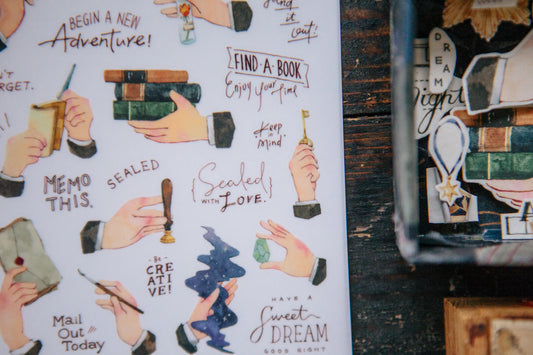 BEGIN A NEW
Adventure!
it out!
FIND·A·BOOK
Enjoy your time
RGET.
Keep
in
mind.
SEALED
MEMO
THIS.
Sealed
WITH LOVE.
BE
CRE
ATI
VE!
Mail Out
Today
HAVE A
Sweet
DREAM
GOOD NIGHT
DREAM